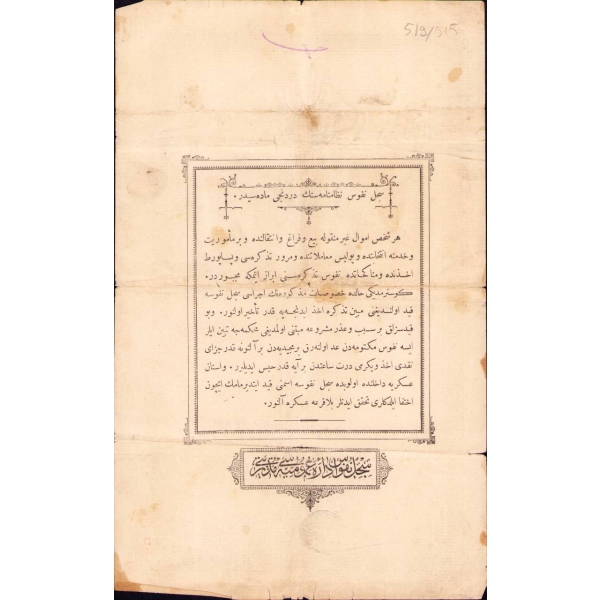 519/515
سجل نفوس نظامنامه سنك دردنجی ماده سیدر .
هر شخص اموال غیر منقوله بیع و فراغ و انتقالنده و بر مأموریت
و خدمته انتخابنده و پولیس معاملاتنده و مرور تذکره سی و پساپورط
اخذنده و مناکحاتنده نفوس تذکره سنی ابراز ایتمکه مجبوردر .
کوسترمدیکی حالده خصوصات مذکوره نك اجراسی سجل نفوسه
قید اولندیغنی مبین تذکره اخذ ایدنجه یه قدر تأخیر اولنور . وبو
قیدسزلق بر سبب و عذر مشروعه مبتنی اولمدیغی محکمه جه تبین ایلر
ایسه نفوس مکتومه دن عد اولنه رق بر مجیدیه دن بر آلتونه قدر جزای
نقدی اخذ و یکرمی درت ساعتدن بر آیه قدر حبس ایدیلور . و اسنان
عسکریه داخلنده اولوبده سجل نفوسه اسمنی قید ایتدیرمامك ایچون
اختفا ایلدکلری تحقق ایدنلر بلا قرعه عسکره آلنور .
سجل نفوس اداره عمومیه سی مدیریتی